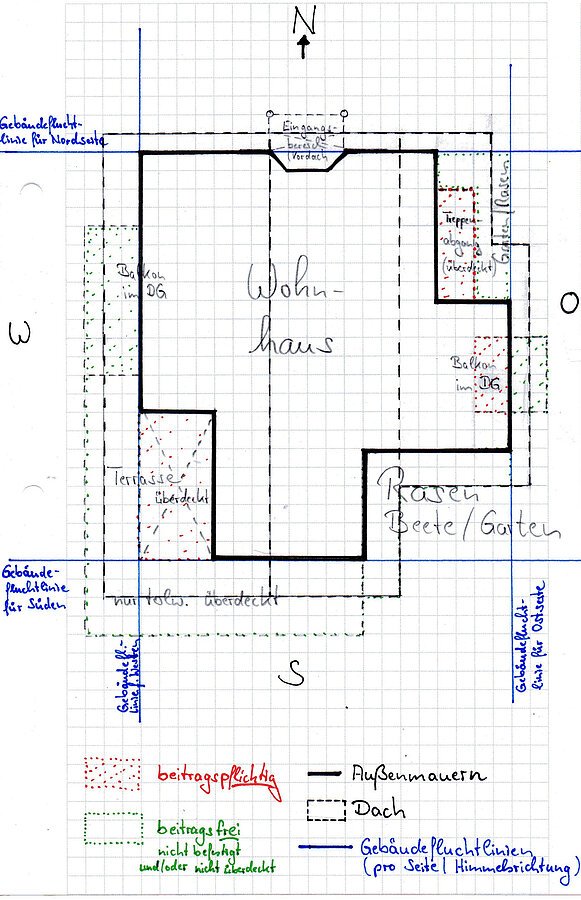 N
Gebäudeflucht-
linie für Nordseite
Eingangs-
bereich
(Vordach
Treppen-
abgang
(überdeckt)
Garten/Rasen
Balkon
im DG
Wohn-
haus
W
O
Balkon
im DG
Terrasse
überdeckt
Rasen
Beete/Garten
Gebäude-
fluchtlinie
für Süden
nur teilw. überdeckt
Gebäudefl.-
linie Westen
S
Gebäudeflucht-
linie für Ostseite
beitragspflichtig
Außenmauern
Dach
beitragsfrei
nicht befestigt
und/oder nicht überdeckt
Gebäudefluchtlinien
(pro Seite/Himmelsrichtung)